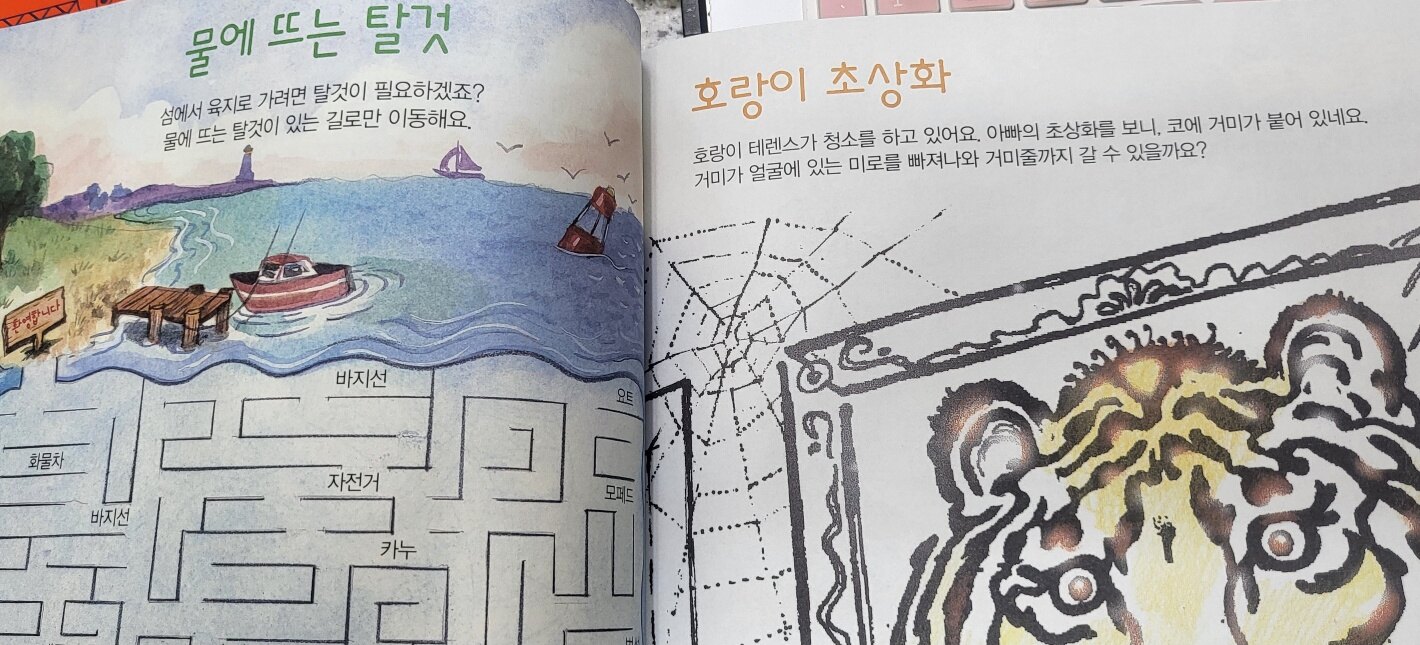 물에 뜨는 탈것
섬에서 육지로 가려면 탈것이 필요하겠죠?
물에 뜨는 탈것이 있는 길로만 이동해요.
환영합니다
바지선
요트
화물차
자전거
모페드
바지선
카누
호랑이 초상화
호랑이 테렌스가 청소를 하고 있어요. 아빠의 초상화를 보니, 코에 거미가 붙어 있네요.
거미가 얼굴에 있는 미로를 빠져나와 거미줄까지 갈 수 있을까요?